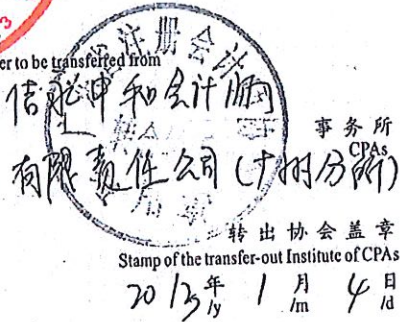 er to be transferred from
注册会计
中和会计师
事务所
CPAs
有限责任公司（分所）
转出协会盖章
Stamp of the transfer-out Institute of CPAs
2013年 1月 4日
/y /m /d